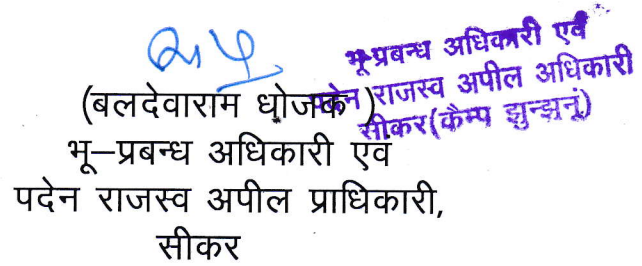 भू-प्रबन्ध अधिकारी एवं
पदेन राजस्व अपील अधिकारी
सीकर(कैम्प झुन्झुनूं)
(बलदेवाराम धोजक)
भू–प्रबन्ध अधिकारी एवं
पदेन राजस्व अपील प्राधिकारी,
सीकर